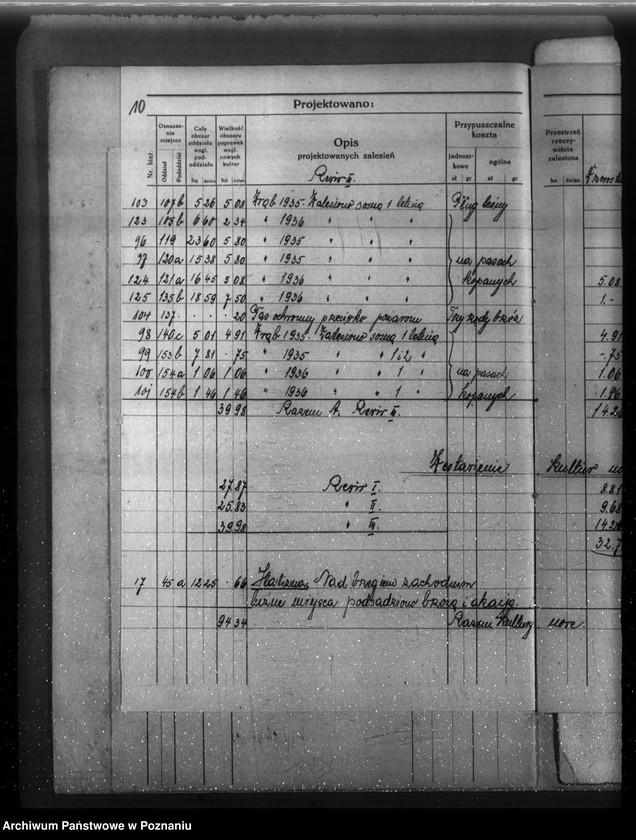 10
Projektowano:
Nr. bież.
Oznaczenie miejsca
Oddział
Pododdział
Cały obszar oddziału wzgl. pododdziału
ha
Wielkość obszaru poprawek wzgl. nowych kultur
ha
Opis
projektowanych zalesień
Rewir III.
Przypuszczalne koszta
jednostkowe
ogólne
zł gr zł gr
Przestrzeń rzeczywiście zalesiona
ha
103 107 b 5 26 5 08 Zrąb 1935. Zalesiono sosną 1 letnią Pług leśny
123 105 b 6 60 2 34 " 1936 " " "
96 119 23 60 5 80 " 1935 " " "
97 120 a 15 38 5 80 " 1935 " " " na pasach
124 121 a 16 45 5 08 " 1936 " " " kopanych 5.08
125 135 b 18 59 7 50 " 1936 " " " 1.-
104 137 . . . 20 Pas ochronny przeciwko pożarom Trzy rzędy brzóz
98 140 c 5 01 4 91 Zrąb 1935. Zalesiono sosną 1 letnią 4.91
99 153 b 7 81 - 75 " 1935 " " 1 i 2 " -.75
100 154 a 1 06 1 06 " 1936 " " 1 " na pasach 1.06
101 157 b 1 46 1 46 " 1936 " " 1 " kopanych 1.46
39 98 Razem A. Rewir III.
Zestawienie kultur
27.87 Rewir I. 8.81
25.83 " II. 9.68
39.98 " III.
32.7
17 45 a 12 25 - 66 Nad brzegiem zachodnim
luźne miejsca podsadzono brzozą i akacją.
94 34 Razem Kultury nowe.
Archiwum Państwowe w Poznaniu